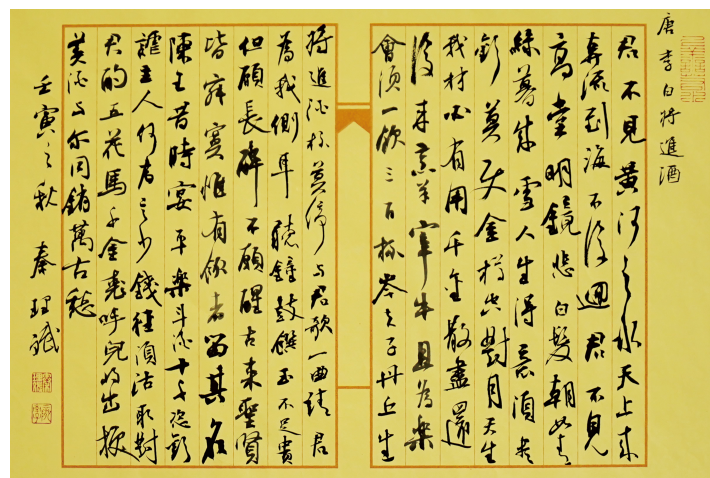 唐李白将進酒
君不見黄河之水天上来
奔流到海不復迴君不見
高堂明鏡悲白髮朝如青
絲暮成雪人生得意須盡
歡莫使金樽空對月天生
我材必有用千金散盡還
復来烹羊宰牛且為樂
會須一飲三百杯岑夫子丹丘生
将進酒杯莫停与君歌一曲請君
為我側耳聽鐘鼓饌玉不足貴
但願長醉不願醒古来聖賢
皆寂寞惟有飲者留其名
陳王昔時宴平樂斗酒十千恣歡
謔主人何為言少錢徑須沽取對
君酌五花馬千金裘呼兒将出換
美酒与尔同銷萬古愁
壬寅之秋 秦理斌